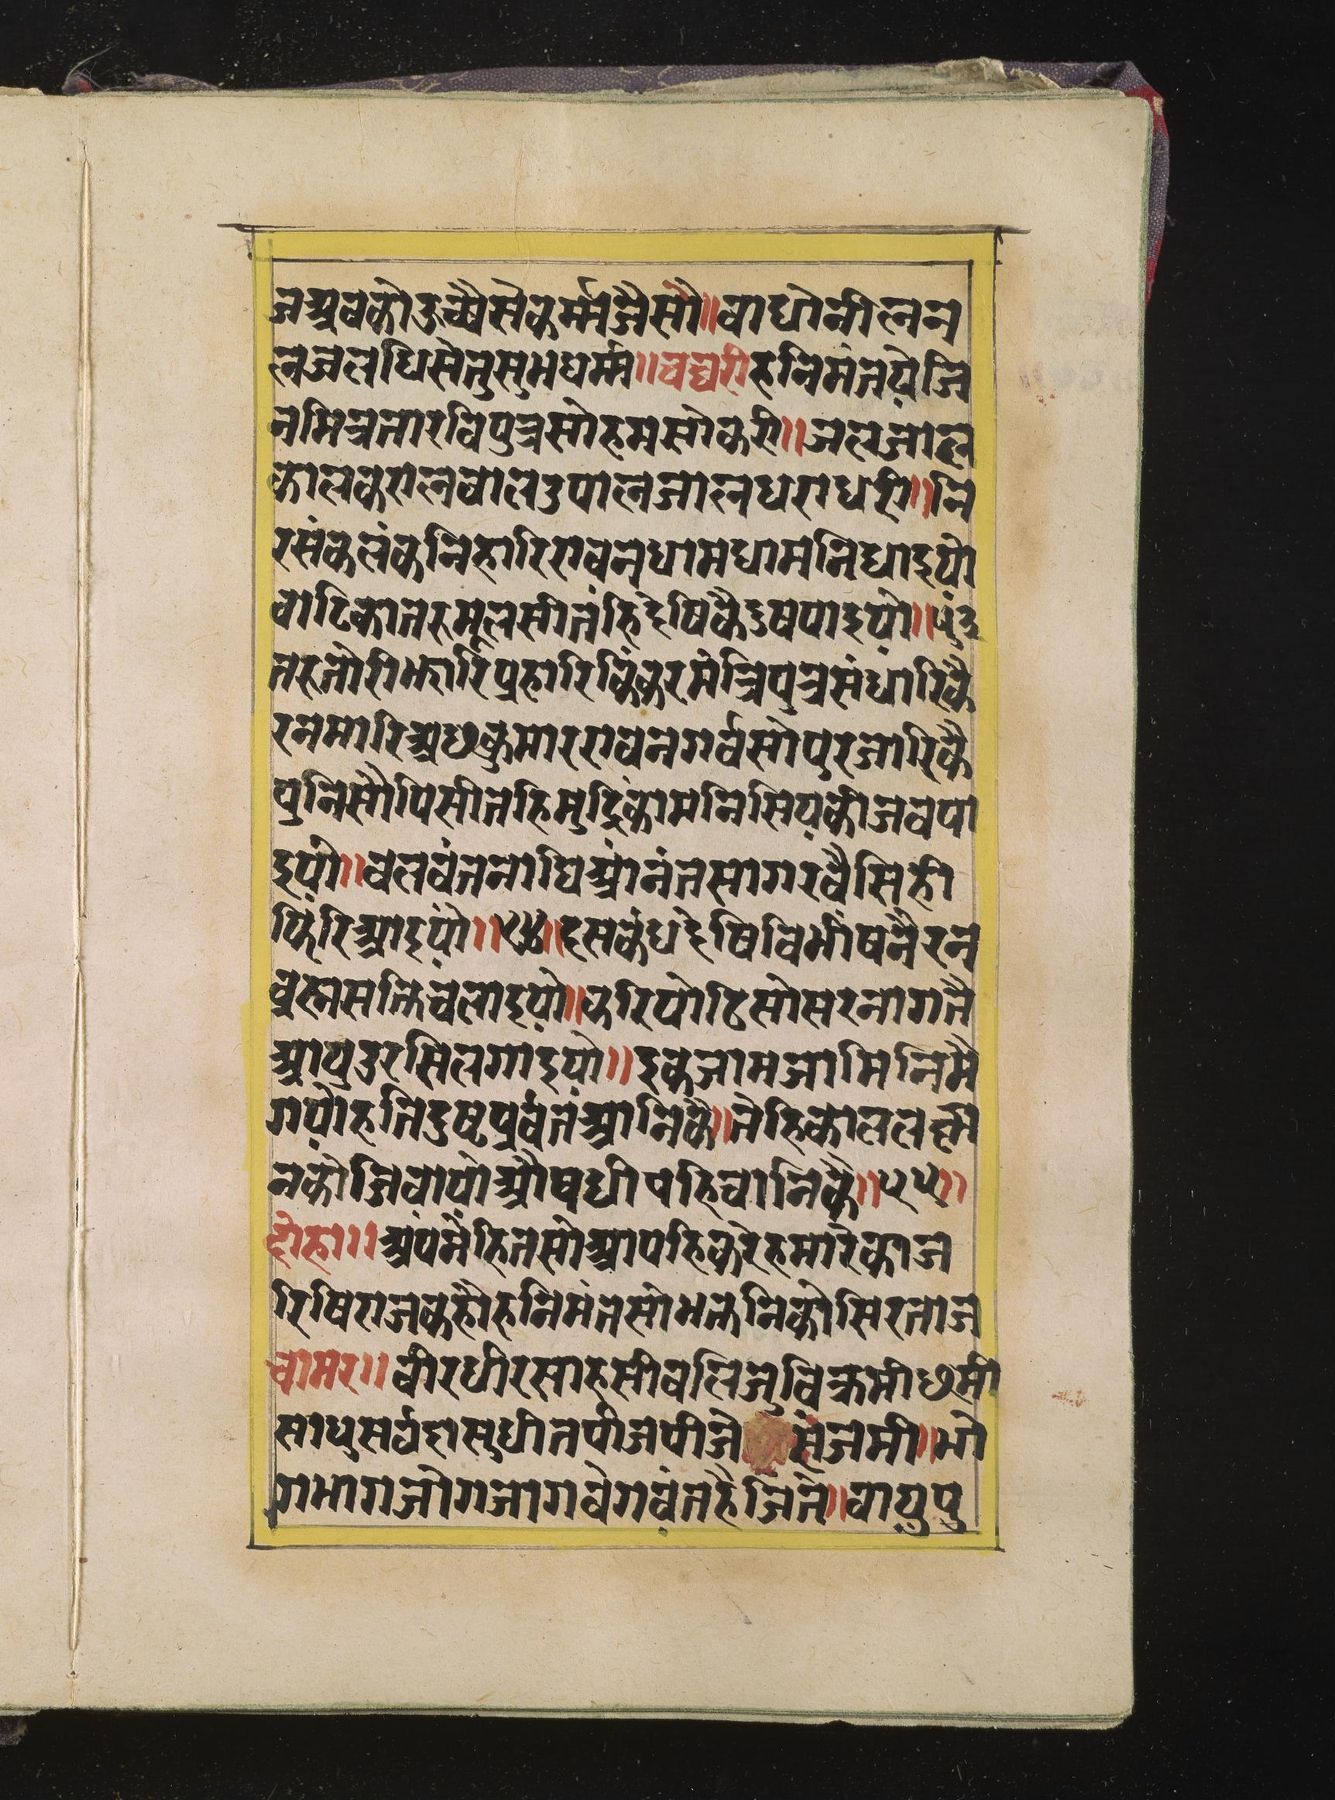 जअवकोउच्चैसेकर्मजैसौ॥वाधोनीलनन
लजलधिसेतुसुभधर्म॥चच्चरी॥हनिमंतयेजि
नमित्रतारविपुत्रसोहमसोकरी॥जलजाल
कालकरालवालउपालजालधराधरी॥नि
रसंकलंकनिहारिरावनधामधामनिधाइयो
वाटिकातरुमूलसीतहिदेषिकैदुषपाइयो॥पुंउ
तरुतोरीझारिप्रहारिकिंकरमंत्रिपुत्रसंघारिकै
रनमारिअछकुमाररावनगर्वसोपुरजारिकै
पुनिसौपिसीतहिमुद्रिकामनिसियकीजवपा
इयो॥वलवंतनाघिअनंतसागरवैसिही
फिरिआइयो॥५४॥दसकंधदेषिविभीषनैरन
ब्रह्मसक्तिचलाइयो॥करिपीठिसोसरनागतै
आपुउरसिलगाइयो॥इकजामजामिनिमै
गयौहतिदुष्टपर्वतआनिकै॥तेहिकाललक्ष्म
नकोजिवायोऔषधीपहिचानिकै॥५५॥
दोहा॥अपनेहितसोआपहिकरेहमारेकाज
रिषिराजकहौहनिमंतसोभक्तनिकोसिरताज
चामर॥वीरधीरसाहसीवलिजुविक्रमीछमी
साधुसर्वदासुधीतपीजपीजे संजमी॥भो
गभागजोगजागवेगवंतहैजिते॥वायुपु